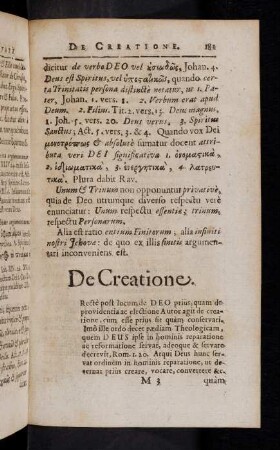 DE CREATIONE. 181
dicitur de verbo DEO vel ἐσιωδῶς, Johan. 4.
Deus est Spiritus, vel ὑποστατικῶς, quando cer-
ta Trinitatis persona distinctè notatur, ut 1. Pa-
ter, Johan. 1. vers. 1. 2. Verbum erat apud
Deum. 2. Filius. Tit. 2. vers. 13. Deus magnus,
1. Joh. 5. vers. 20. Deus verus, 3. Spiritus
Sanctus, Act. 5. vers. 3. & 4. Quando vox Dei
& absolutè sumatur docent attri-
buta veri DEI significativa 1. ὀνομαστικὰ,
2. ἰδιωματικὰ, 3. ἐνεργητικὰ, 4. λατρευ-
τικά. Plura dabit Rav.
Unum & Trinum non opponuntur privativè,
quia de Deo utrumque diverso respectu verè
enunciatur: Unum respectu essentiæ; trinum,
respectu Personarum.
Alia est ratio entium Finitorum, alia infiniti
nostri Jehovæ: de quo ex illis finitis argumen-
tari inconveniens est.
De Creatione.
Rectè post locum de DEO prius, quam de
providentia ac electione Autor agit de crea-
tione cum esse prius sit quàm conservari.
Imò ille ordo decet pædiam Theologicam,
quem DEUS ipse in hominis reparatione
ac reformatione servat, adeoque & servare
decrevit, Rom. 1. 20. Atqui Deus hunc ser-
vat ordinem in hominis reparatione, ut de-
beat prius creare, vocare, convertere &c.
M 3 quàm